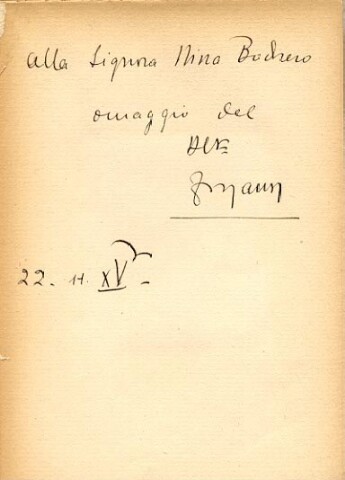 Alla Signora Nina Bodrero
omaggio del
22. 11. XV